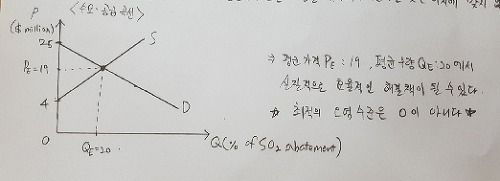 <수요·공급 곡선>
P
($ million)
25
S
PE=19
4
D
0
QE=20
Q(% of SO2 abatement)
→ 평균가격 PE : 19, 평균수량 QE : 20 에서
실질적으로 효율적인 해결책이 될 수 있다.
* 최적의 오염수준은 0이 아니다 *